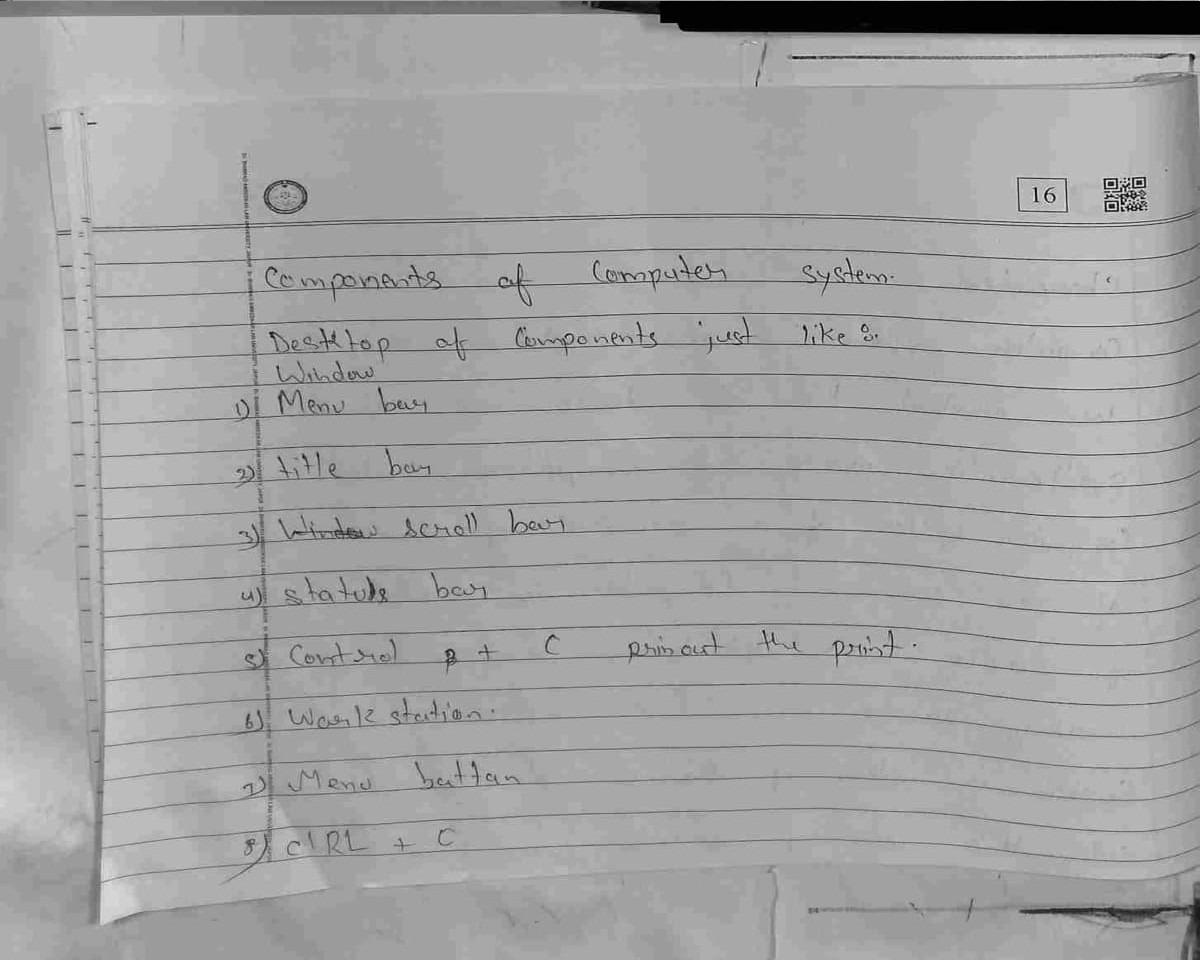 16
Components of Computer system.
Desktop of Components just like :
Window
1) Menu bar
2) title bar
3) Window scroll bar
4) status bar
5) Control + C prinout the print.
6) Work station.
7) Menu battan
8) CTRL + C